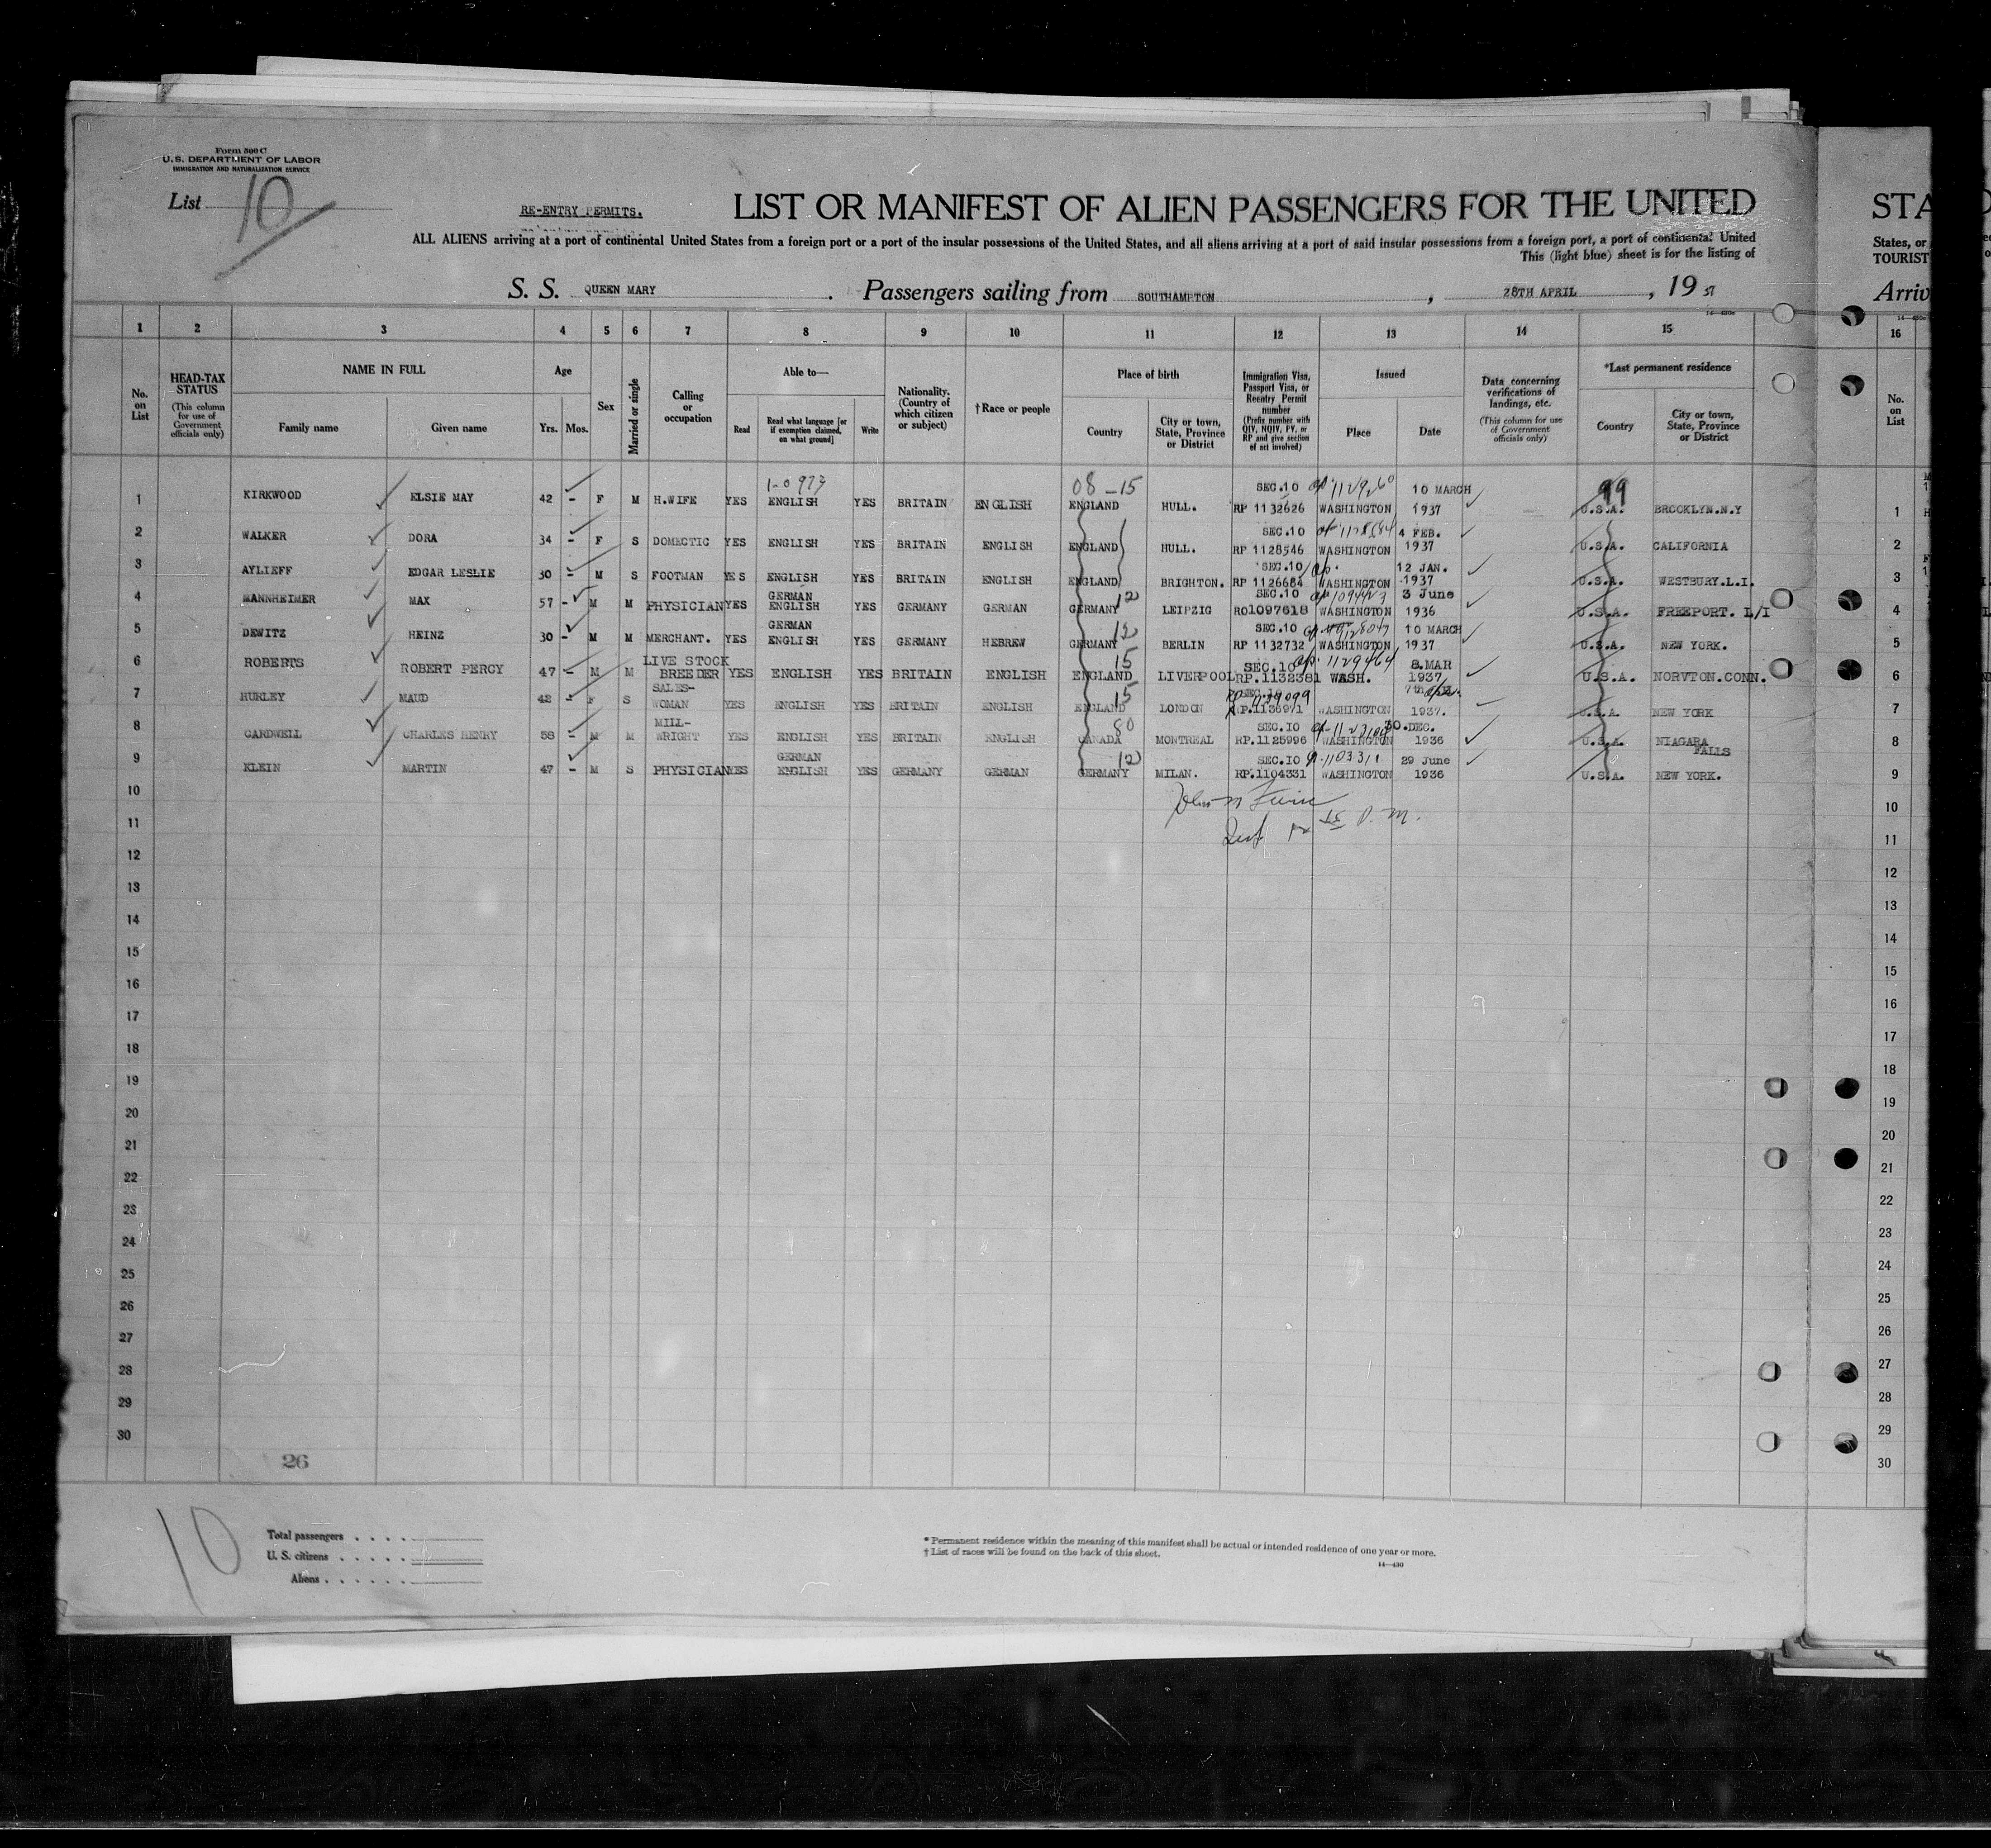 Form 500 C
U.S. DEPARTMENT OF LABOR
IMMIGRATION AND NATURALIZATION SERVICE
List 10
RE-ENTRY PERMITS.
LIST OR MANIFEST OF ALIEN PASSENGERS FOR THE UNITED
STA
ALL ALIENS arriving at a port of continental United States from a foreign port or a port of the insular possessions of the United States, and all aliens arriving at a port of said insular possessions from a foreign port, a port of continental United
States, or
This (light blue) sheet is for the listing of
TOURIST
S. S. QUEEN MARY. Passengers sailing from SOUTHAMPTON, 28TH APRIL, 19 37
Arriv
14-430c
1 2 3 4 5 6 7 8 9 10 11 12 13 14 15 16
No. on List
HEAD-TAX STATUS (This column for use of Government officials only)
NAME IN FULL
Family name
Given name
Age
Yrs. Mos.
Sex
Married or single
Calling or occupation
Able to—
Read
Read what language [or if exemption claimed, on what ground]
Write
Nationality. (Country of which citizen or subject)
† Race or people
Place of birth
Country
City or town, State, Province or District
Immigration Visa, Passport Visa, or Reentry Permit number (Prefix number with QIV, NQIV, PV, or RP and give section of act involved)
Issued
Place
Date
Data concerning verifications of landings, etc. (This column for use of Government officials only)
*Last permanent residence
Country
City or town, State, Province or District
No. on List
1-0973 08-15 SEC.10 1129260 10 MARCH 99
1 KIRKWOOD ELSIE MAY 42 - F M H.WIFE YES ENGLISH YES BRITAIN ENGLISH ENGLAND HULL. RP 1132626 WASHINGTON 1937 U.S.A. BROOKLYN.N.Y 1
SEC.10 4 FEB.
2 WALKER DORA 34 - F S DOMECTIC YES ENGLISH YES BRITAIN ENGLISH ENGLAND HULL. RP 1128546 WASHINGTON 1937 U.S.A. CALIFORNIA 2
SEC.10 12 JAN.
3 AYLIEFF EDGAR LESLIE 30 - M S FOOTMAN YES ENGLISH YES BRITAIN ENGLISH ENGLAND BRIGHTON. RP 1126684 WASHINGTON 1937 U.S.A. WESTBURY.L.I. 3
GERMAN 12 SEC.10 1094423 3 June
4 MANNHEIMER MAX 57 - M M PHYSICIAN YES ENGLISH YES GERMANY GERMAN GERMANY LEIPZIG RO1097618 WASHINGTON 1936 U.S.A. FREEPORT. L/I 4
GERMAN 12 SEC.10 10 MARCH
5 DEWITZ HEINZ 30 - M M MERCHANT. YES ENGLISH YES GERMANY HEBREW GERMANY BERLIN RP 1132732 WASHINGTON 1937 U.S.A. NEW YORK. 5
LIVE STOCK 15 SEC.10 1129464 8.MAR
6 ROBERTS ROBERT PERCY 47 - M M BREEDER YES ENGLISH YES BRITAIN ENGLISH ENGLAND LIVERPOOL RP.1132381 WASH. 1937 U.S.A. NORVTON.CONN. 6
SALES- 15 SEC.10
7 HURLEY MAUD 42 - F S WOMAN YES ENGLISH YES BRITAIN ENGLISH ENGLAND LONDON RP.1136971 WASHINGTON 1937. U.S.A. NEW YORK 7
MILL- 80 SEC.10 30.DEC.
8 CARDWELL CHARLES HENRY 58 - M M WRIGHT YES ENGLISH YES BRITAIN ENGLISH CANADA MONTREAL RP.1125996 WASHINGTON 1936 U.S.A. NIAGARA FALLS 8
GERMAN 12 SEC.10 1103311 29 June
9 KLEIN MARTIN 47 - M S PHYSICIAN YES ENGLISH YES GERMANY GERMAN GERMANY MILAN. RP.1104331 WASHINGTON 1936 U.S.A. NEW YORK. 9
10 10
11 11
12 12
13 13
14 14
15 15
16 16
17 17
18 18
19 19
20 20
21 21
22 22
23 23
24 24
25 25
26 26
27 27
28 28
29 29
30 30
26
10
Total passengers
U. S. citizens
Aliens
* Permanent residence within the meaning of this manifest shall be actual or intended residence of one year or more.
† List of races will be found on the back of this sheet.
14—430